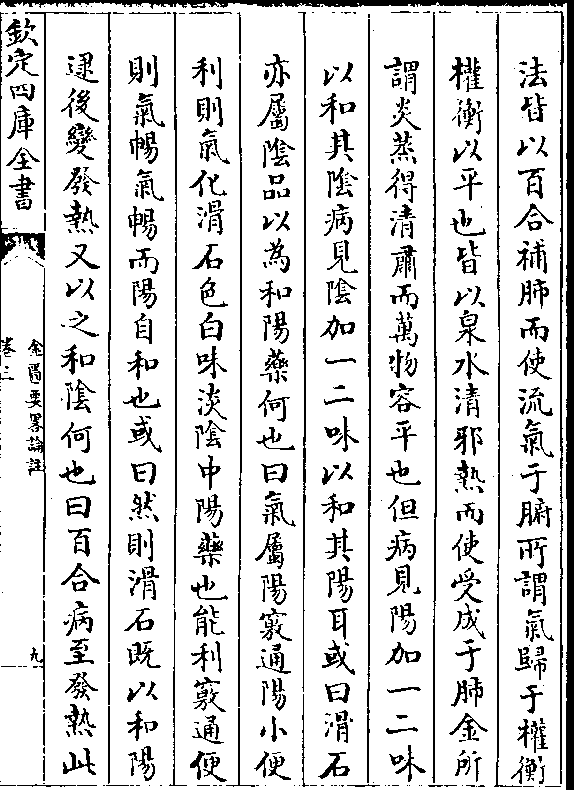 法皆以百合補肺而使流氣于腑所謂氣歸于權衡
權衡以平也皆以泉水清邪熱而使受成于肺金所
謂炎蒸得清肅而萬物容平也但病見陽加一二味
以和其陰病見陰加一二味以和其陽耳或曰滑石
亦屬陰品以為和陽藥何也曰氣屬陽竅通陽小便
利則氣化滑石色白味淡陰中陽藥也能利竅通便
則氣暢氣暢而陽自和也或曰然則滑石既以和陽
逮後變發熱又以之和陰何也曰百合病至發熱此
欽定四庫全書
金匱要畧論註
卷三
九